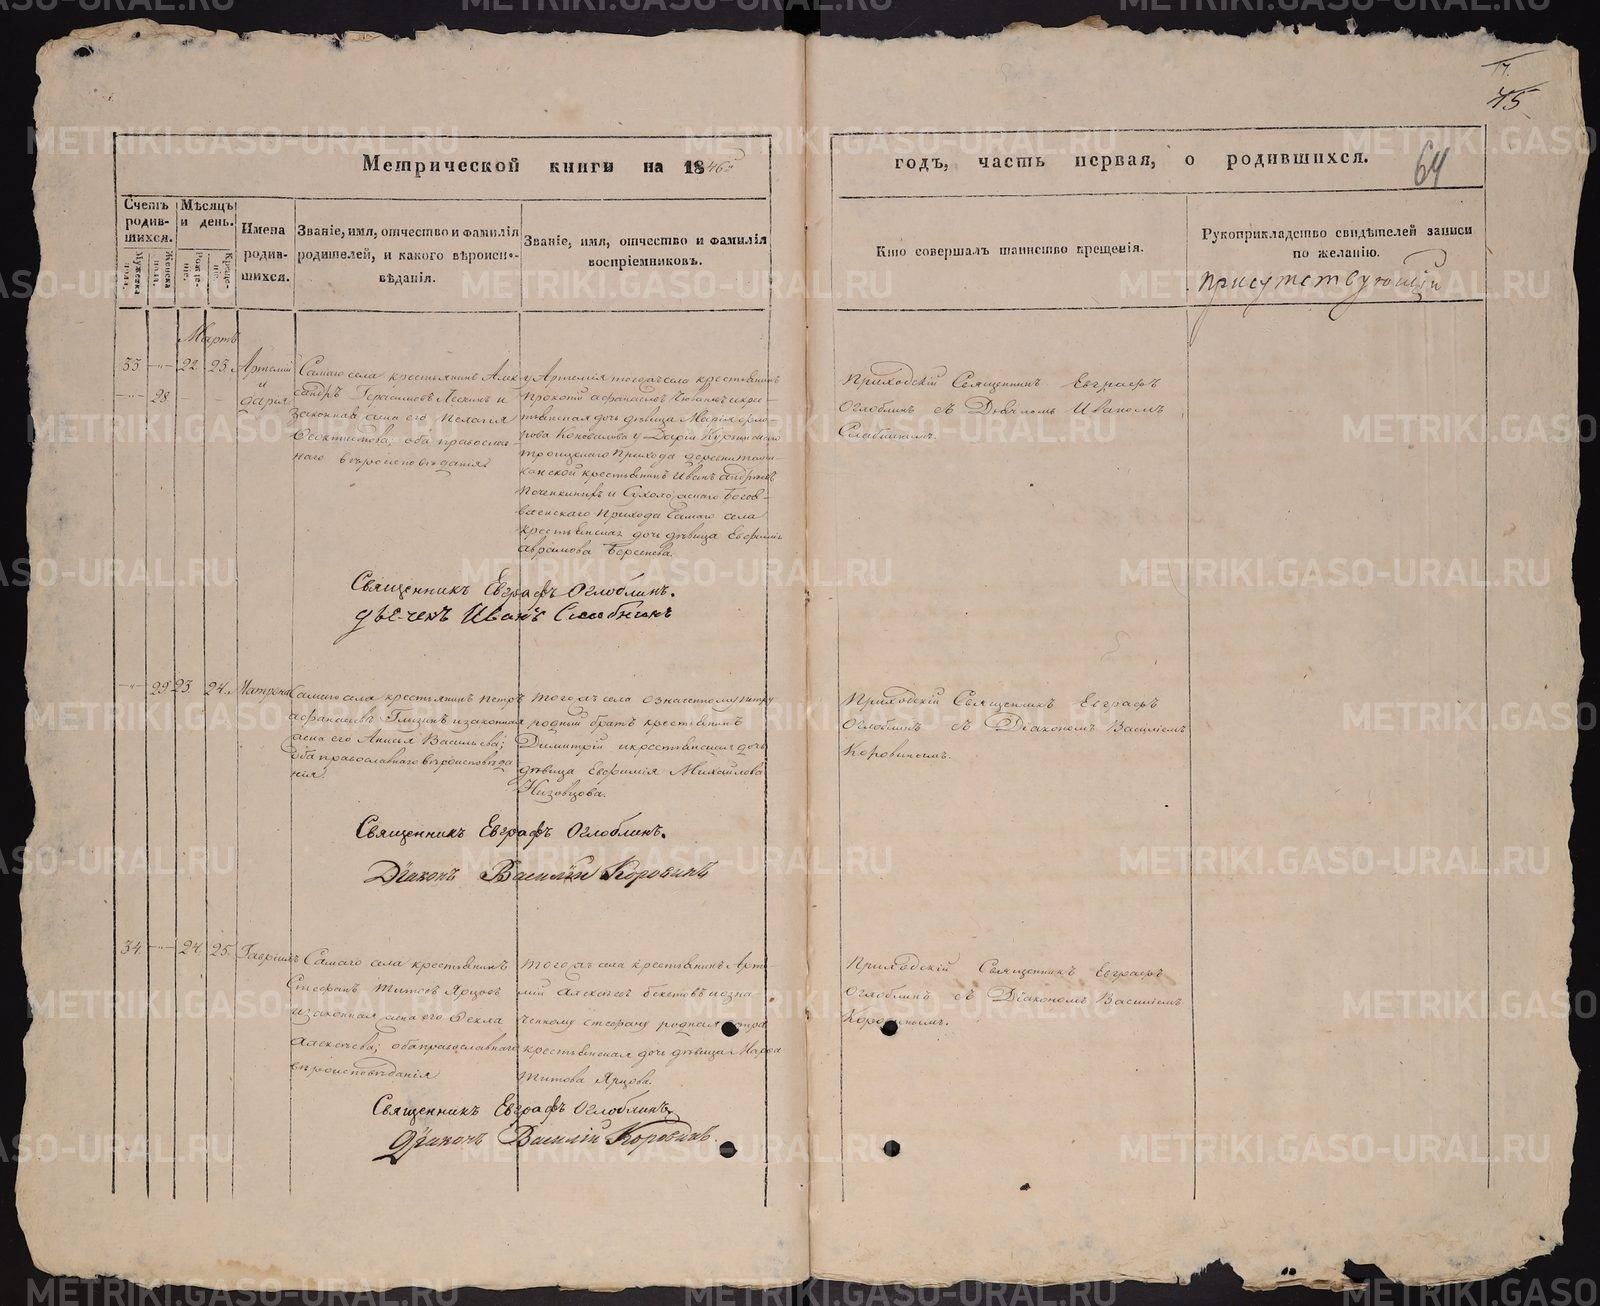 17.
45
64
Метрической книги на 1846й
годъ, часть первая, о родившихся.
Счетъ родив-шихся.
Мужеска пола.
Женска пола.
Мѣсяцъ и день.
Рожде-нiе.
Креще-нiе.
Имена родив-шихся.
Званiе, имя, отчество и фамилiя
родителей, и какого вѣроиспо-
вѣданiя.
Званiе, имя, отчество и фамилiя
воспрiемниковъ.
Кто совершалъ таинство крещенiя.
Рукоприкладство свидѣтелей записи
по желанiю.
присутствующiй
Мартъ
33 22 23 Артемiй
28 и Дарья
Самаго села крестьянинъ Алек
сандръ Герасимовъ и
законная жена его Пелагiя
Феоктистова, оба православ-
наго вѣроисповѣданiя
у Артемiя тогожъ села крестьянинъ
Прокопiй Афанасьевъ и крес-
тьянская дочь дѣвица Марiя
Коновалова у Дарiи
Прихода деревни
крестьянинъ Иванъ
и Сухоложскаго Богояв-
ленскаго Прихода самаго села
крестьянская дочь дѣвица Евфимiя
Аврамова
Приходскiй Священникъ Евграфъ
Оглоблинъ съ Дьячкомъ Иваномъ
Священникъ Евграфъ Оглоблинъ.
дьечекъ Иванъ
29 23 24 Матрона
Самаго села крестьянинъ Петръ
Афанасьевъ и законная
жена его Анисья Васильева;
оба православнаго вѣроисповѣда
нiя
Тогожъ села означенному Петру
родный братъ крестьянинъ
Димитрiй и крестьянская дочь
дѣвица Евфимiя Михайлова
Низовцова.
Приходскiй Священникъ Евграфъ
Оглоблинъ съ Дiакономъ Василiемъ
Коровинымъ.
Священникъ Евграфъ Оглоблинъ.
Дiаконъ Василiй Коровинъ
34 24 25 Гаврiилъ
Самаго села крестьянинъ
Стефанъ Титовъ Ярцовъ
и законная жена его Фекла
Алексѣева; оба православнаго
вѣроисповѣданiя
Тогожъ села крестьянинъ Арте-
мiй Алексѣевъ Бекетовъ и озна-
ченному Стефану родная сестра
крестьянская дочь дѣвица Марфа
Титова Ярцова.
Приходскiй Священникъ Евграфъ
Оглоблинъ съ Дiакономъ Василiемъ
Коровинымъ.
Священникъ Евграфъ Оглоблинъ,
Дiаконъ Василiй Коровинъ.
METRIKI.GASO-URAL.RU